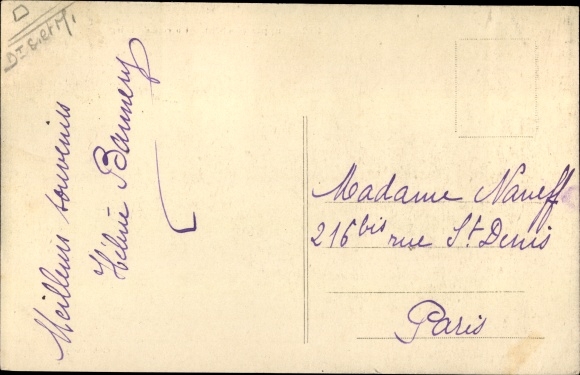 Meilleurs souvenirs
Hélène
Madame Naneff
216 bis rue St Denis
Paris